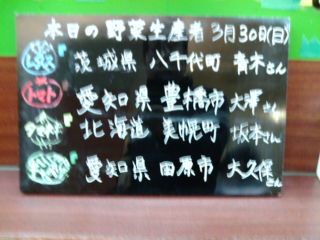 本日の野菜生産者 3月30日(日)
レタス 茨城県 八千代町 青木さん
トマト 愛知県 豊橋市 大澤さん
北海道 美幌町 坂本さん
愛知県 田原市 大久保さん